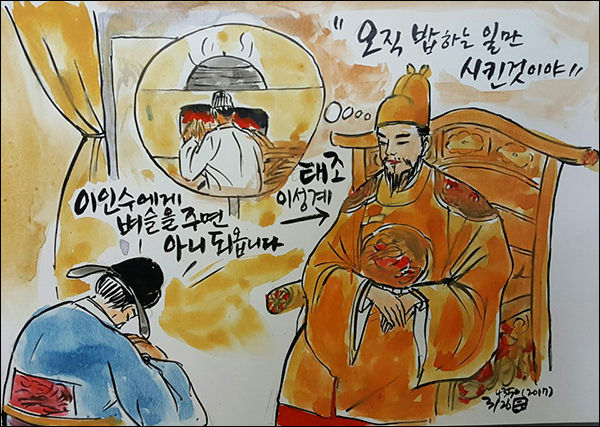 " 오직 밥하는 일만
시킨것이야 "
태조
이성계
이인수에게
벼슬을 주면
아니되옵니다
(2017)
3/26